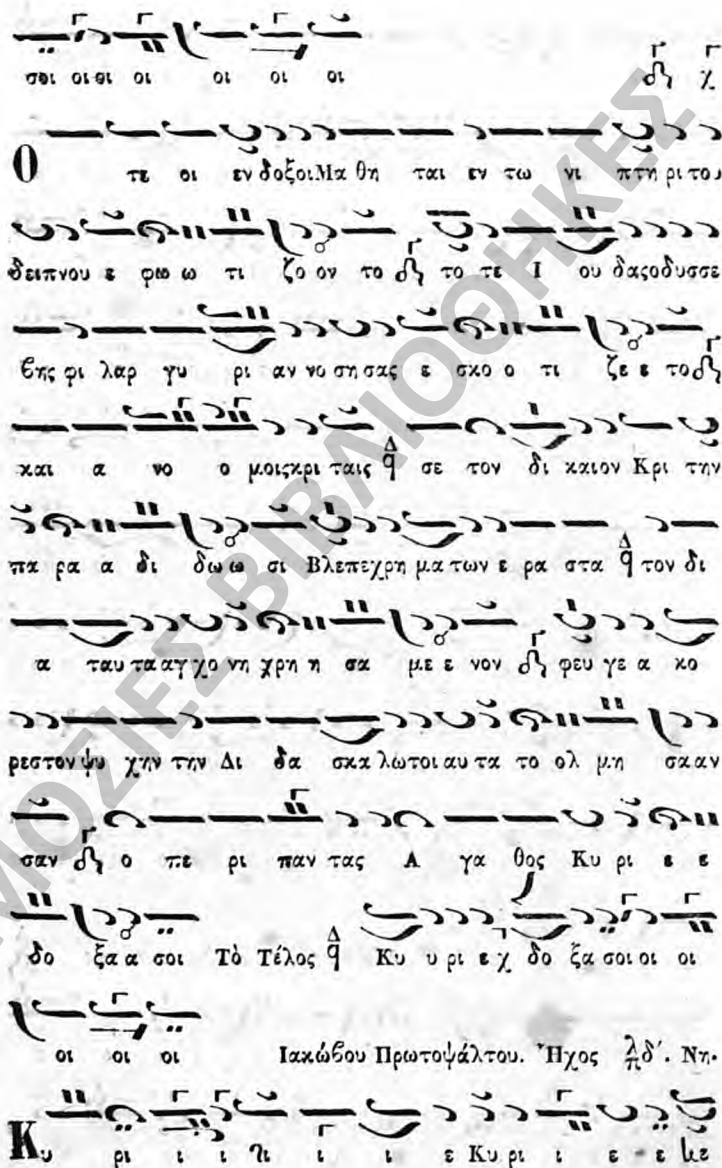 σοι οι οι οι οι οι οι
Ο τε οι εν δοξοι Μα θη ται εν τω νι πτη ρι του
δειπνου ε φω ω τι ζο ον το το τε Ι ου δας ο δυσσε
βης φι λαρ γυ ρι αν νο ση σας ε σκο ο τι ζε ε το
και α νο ο μοις κρι ταις σε τον δι καιον Κρι την
πα ρα α δι δω ω σι Βλεπε χρη μα των ε ρα στα τον δι
α ταυ τα αγ χο νη χρη η σα με ε νον φευ γε α κο
ρεστον ψυ χην την Δι δα σκα λω τοι αυ τα το ολ μη σα αν
σαν ο πε ρι παν τας Α γα θος Κυ ρι ε ε
δο ξα α σοι Τὸ Τέλος Κυ υ ρι ε δο ξα σοι οι οι
οι οι οι Ιακώβου Πρωτοψάλτου. Ἦχος λ π δ´. Νη.
Κυ ρι ι ι ι ι ε Κυ ρι ι ε ε
ΜΟΖΙΕΣ ΒΙΒΛΙΟΘΗΚΕΣ